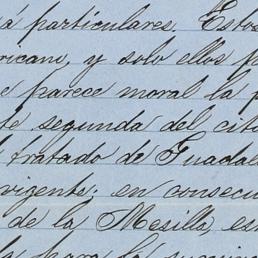 á particulares. Estos
ricani, y solo ellos p
e parece moral la p
te segunda del cit
l tratado de Guadal
vigente; en consecu
de la Mesilla, es